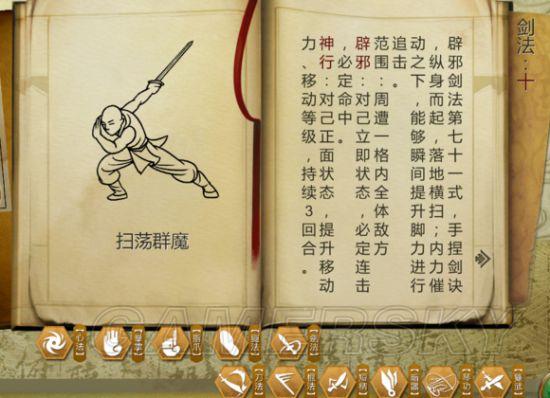 剑法：十
辟邪剑法第七十一式，手捏剑诀
，纵身而起，落地横扫；内力催
动之下，能够瞬间提升脚力进行
追击。
范围：对周遭一格内全体敌方
辟邪：对己立即状态，必定连击
，必定命中
神行：对己正面状态，提升移动
力、移动等级，持续3回合。
扫荡群魔
GAMERSKY
心法
腿法
剑法
刀法
棍法
短柄
暗器